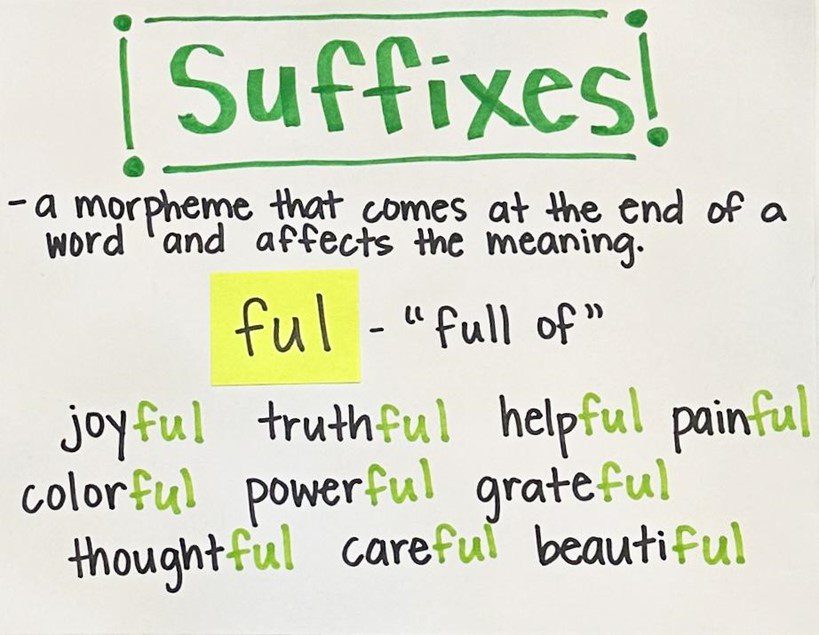 Suffixes!
- a morpheme that comes at the end of a
word and affects the meaning.
ful - “full of”
joyful truthful helpful painful
colorful powerful grateful
thoughtful careful beautiful